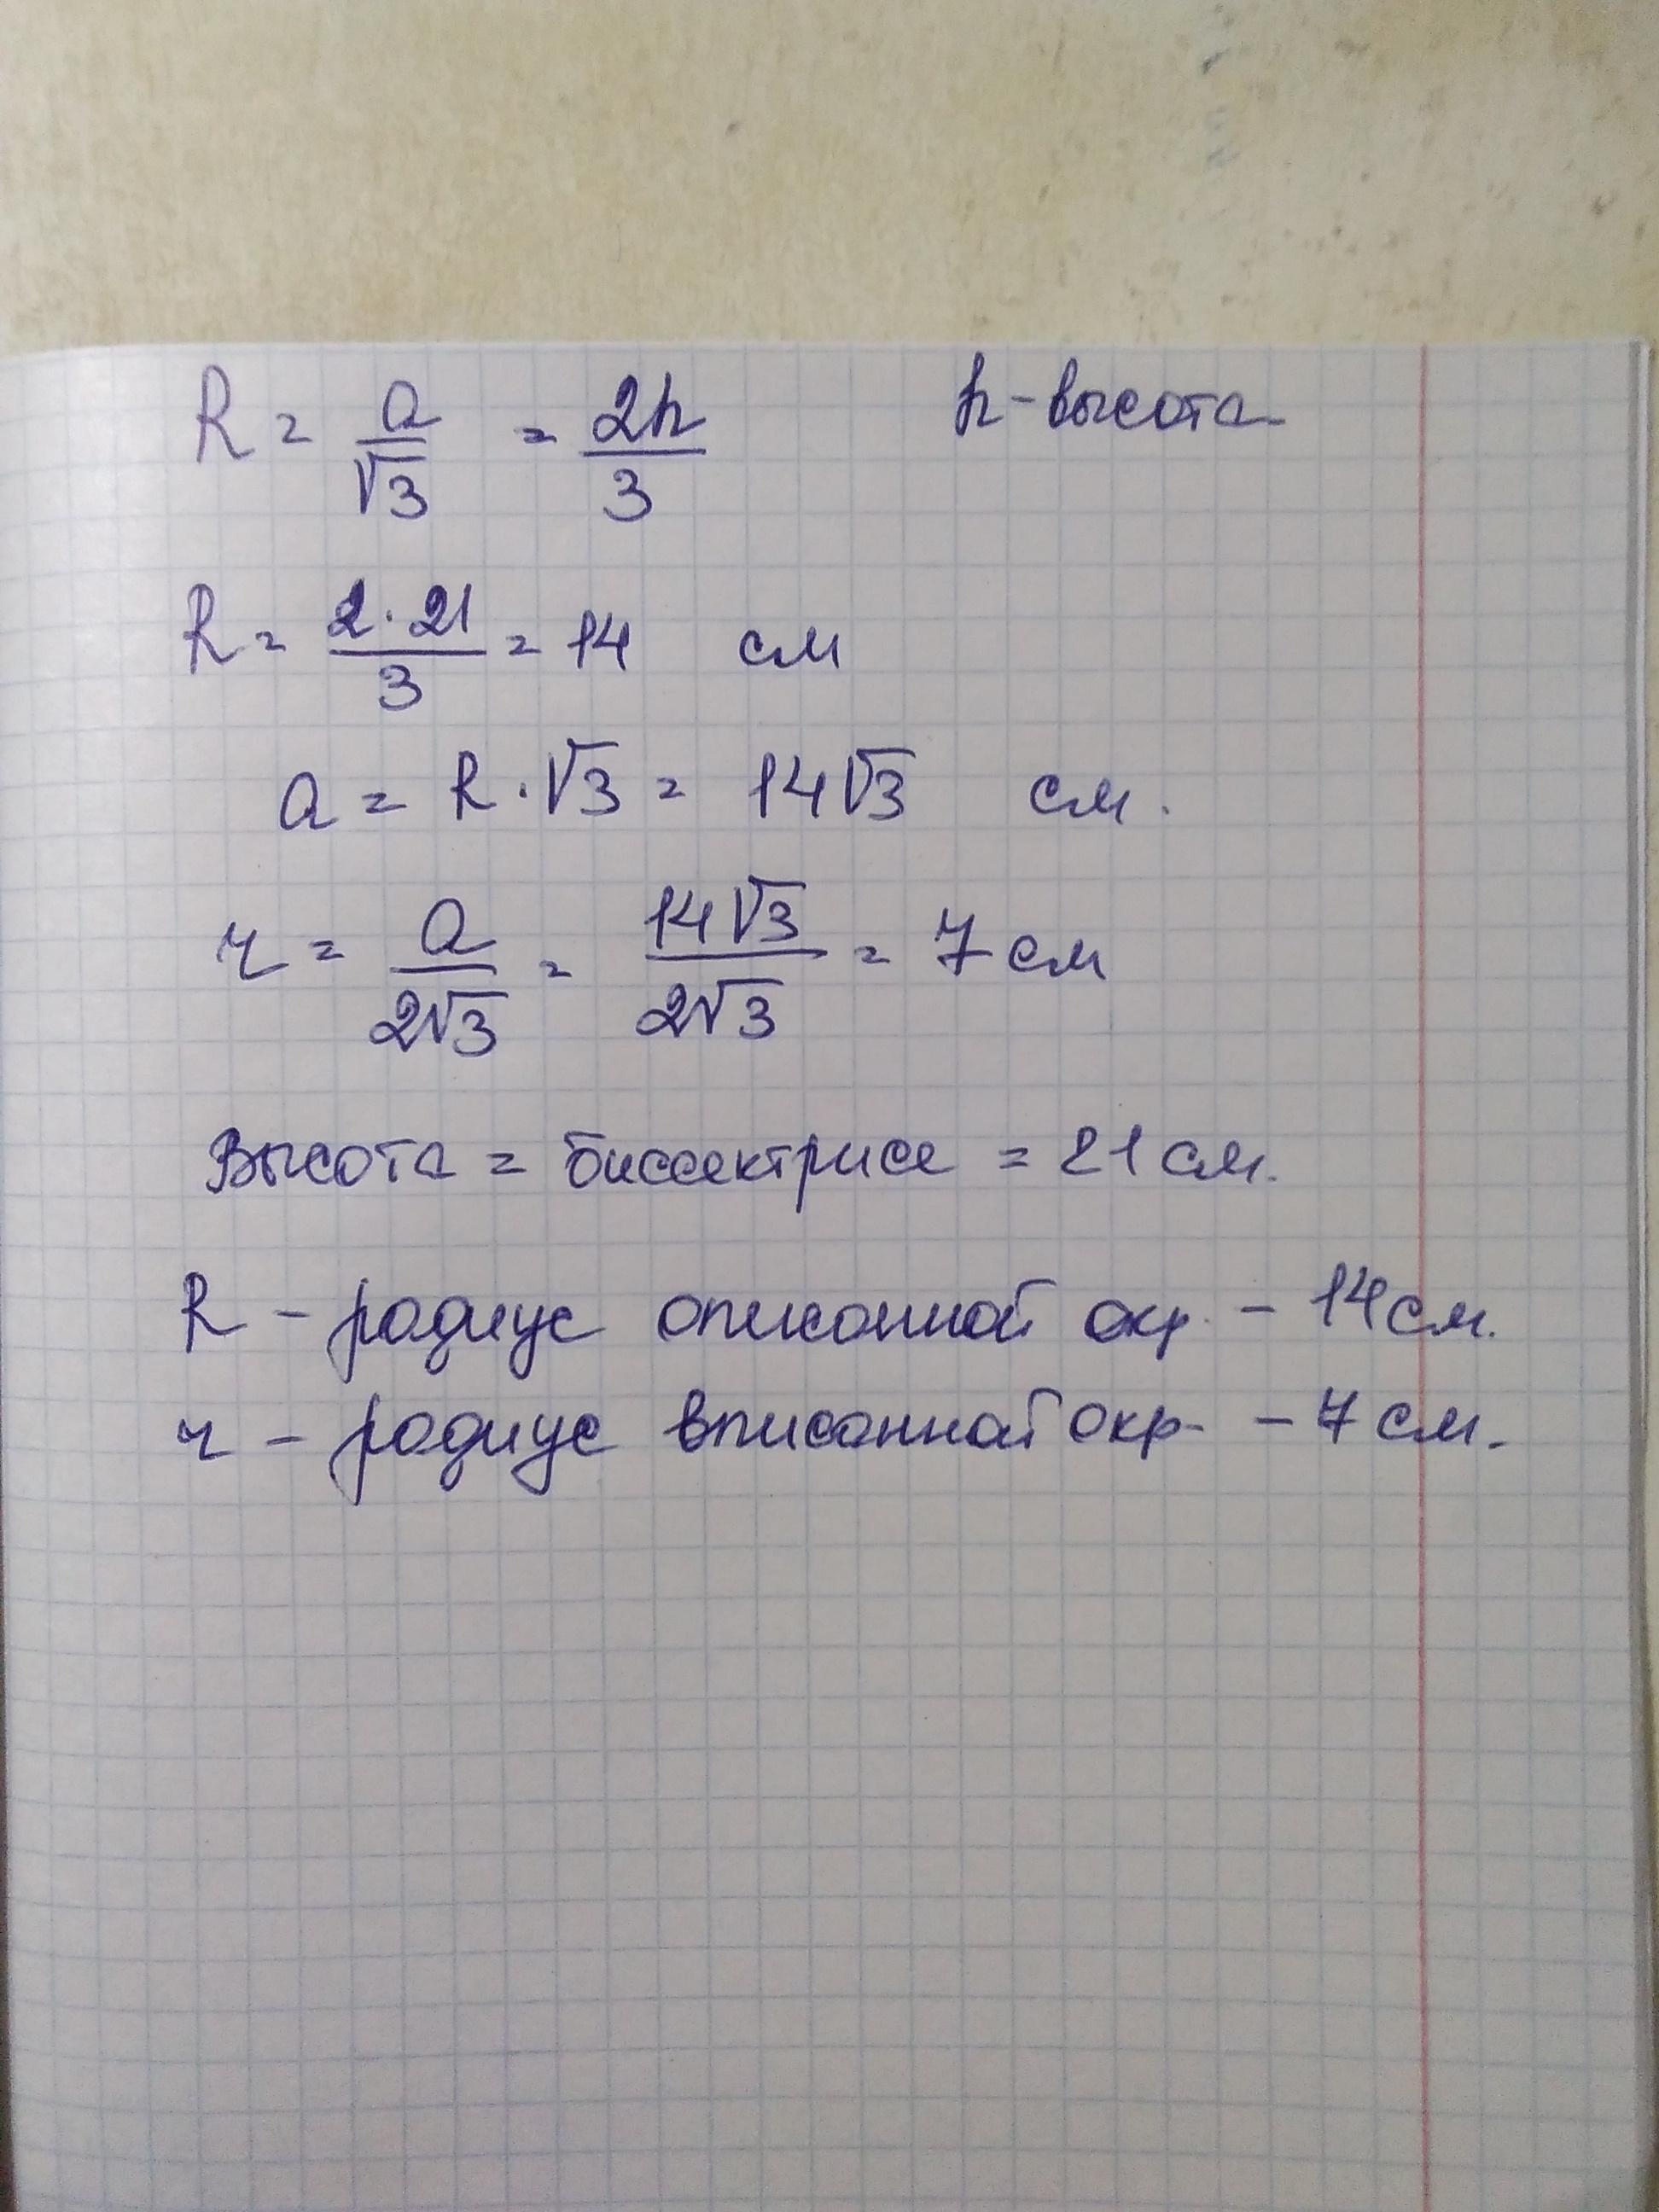 R = a/√3 = 2h/3 h - высота
R = 2·21/3 = 14 см
a = R·√3 = 14√3 см.
r = a/2√3 = 14√3/2√3 = 7 см
Высота = биссектрисе = 21 см.
R - радиус описанной окр. - 14 см.
r - радиус вписанной окр. - 7 см.